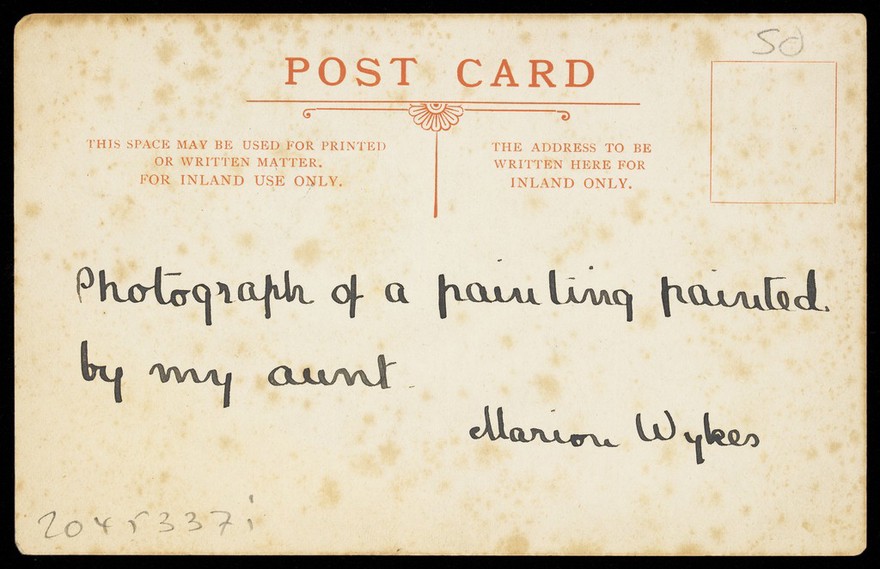 50
POST CARD
THIS SPACE MAY BE USED FOR PRINTED
OR WRITTEN MATTER.
FOR INLAND USE ONLY.
THE ADDRESS TO BE
WRITTEN HERE FOR
INLAND ONLY.
Photograph of a painting painted
by my aunt.
Marion Wykes
2045337i